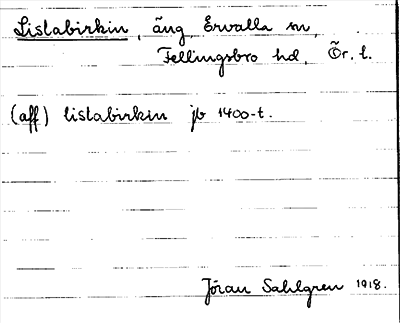 Lislabirkin, äng Ervalla sn,
Fellingsbro hd, Ör. l.
(aff) lislabirkin jb 1400-t.
Jöran Sahlgren 1918.